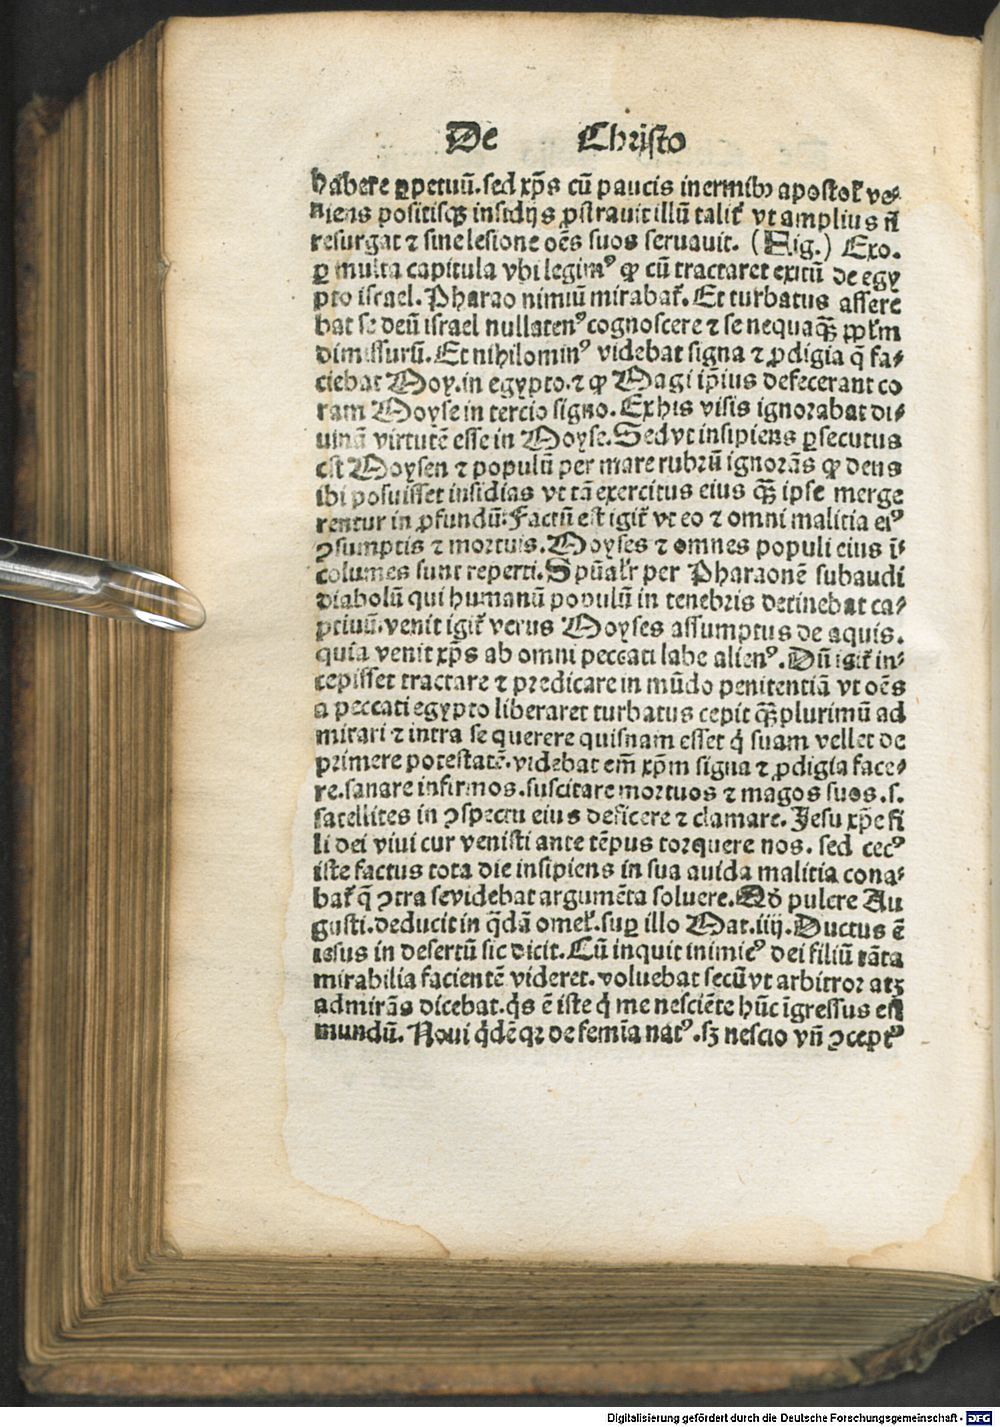 De Christo
habere ꝑpetuū. sed xp̄s cū paucis inermibꝰ apostol᷑ ve-
niens positisqꝫ insidijs ꝓstravit illū talit᷑ vt amplius nō
resurgat ⁊ sine lesione oēs suos servauit. (Fig.) Exo.
ꝑ multa capitula vbi legimꝰ ꝙ cū tractaret exitū de egy
pto israel. Pharao nimiū mirabat᷑. Et turbatus assere
bat se deū israel nullatenꝰ cognoscere ⁊ se nequaqꝫ̄ pp̄l᷑m
dimissurū. Et nihilominꝰ videbat signa ⁊ ꝓdigia q̄ fa-
ciebat Moy. in egypto. ⁊ ꝙ Magi ip̄ius defecerant co
ram Moyse in tercio signo. Ex his visis ignorabat di-
uinā virtutē esse in Moyse. Sed vt insipiens ꝑsecutus
est Moysen ⁊ populū per mare rubrū ignorās ꝙ deus
ibi posuisset insidias vt tā exercitus eius qꝫ̄ ipse merge
rentur in ꝓfundū. Factū est igit᷑ vt eo ⁊ omni malitia eiꝰ
ꝯsumptis ⁊ mortuis. Moyses ⁊ omnes populi eius ī-
columes sunt reperti. Spūal᷑r per Pharaonē subaudi
diabolū qui humanū populū in tenebris detinebat ca-
ptiuū. venit igit᷑ verus Moyses assumptus de aquis.
quia venit xp̄s ab omni peccati labe alienꝰ. Dū igit᷑ in-
cepisset tractare ⁊ predicare in mūdo penitentiā vt oēs
a peccati egypto liberaret turbatus cepit qꝫ̄ plurimū ad
mirari ⁊ intra se querere quisnam esset q̇ suam vellet de
primere potestatē. videbat em̄ xp̄m signa ⁊ ꝓdigia face-
re. sanare infirmos. suscitare mortuos ⁊ magos suos .s.
satellites in ꝯspectu eius deficere ⁊ clamare. Jesu xp̄e fi
li dei vivi cur venisti ante tēpus torquere nos. sed cecꝰ
iste factus tota die insipiens in sua auida malitia cona-
bat᷑ q̄ ꝯtra se videbat argumēta soluere. Qd̄ pulcre Au
gusti. deducit in q̄dā omel᷑. suꝑ illo Mat. iiij. Ductus ē
iesus in desertū sic dicit. Cū inquit inimicꝰ dei filiū tāta
mirabilia facientē videret. voluebat secū vt arbitror atꝫ
admirās dicebat. q̇s ē iste q̇ me nesciēte hūc īgressus est
mundū. Noui q̇dē qꝛ de femīa natꝰ. sꝫ nescio vn̄ ꝯceptꝰ
Digitalisierung gefördert durch die Deutsche Forschungsgemeinschaft - DFG